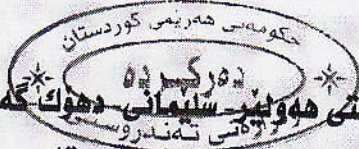 حکومەتی هەرێمی کوردستان
دەرکردە
تی هەولێر-سلێمانی-دهۆك-گە
تەندروستی